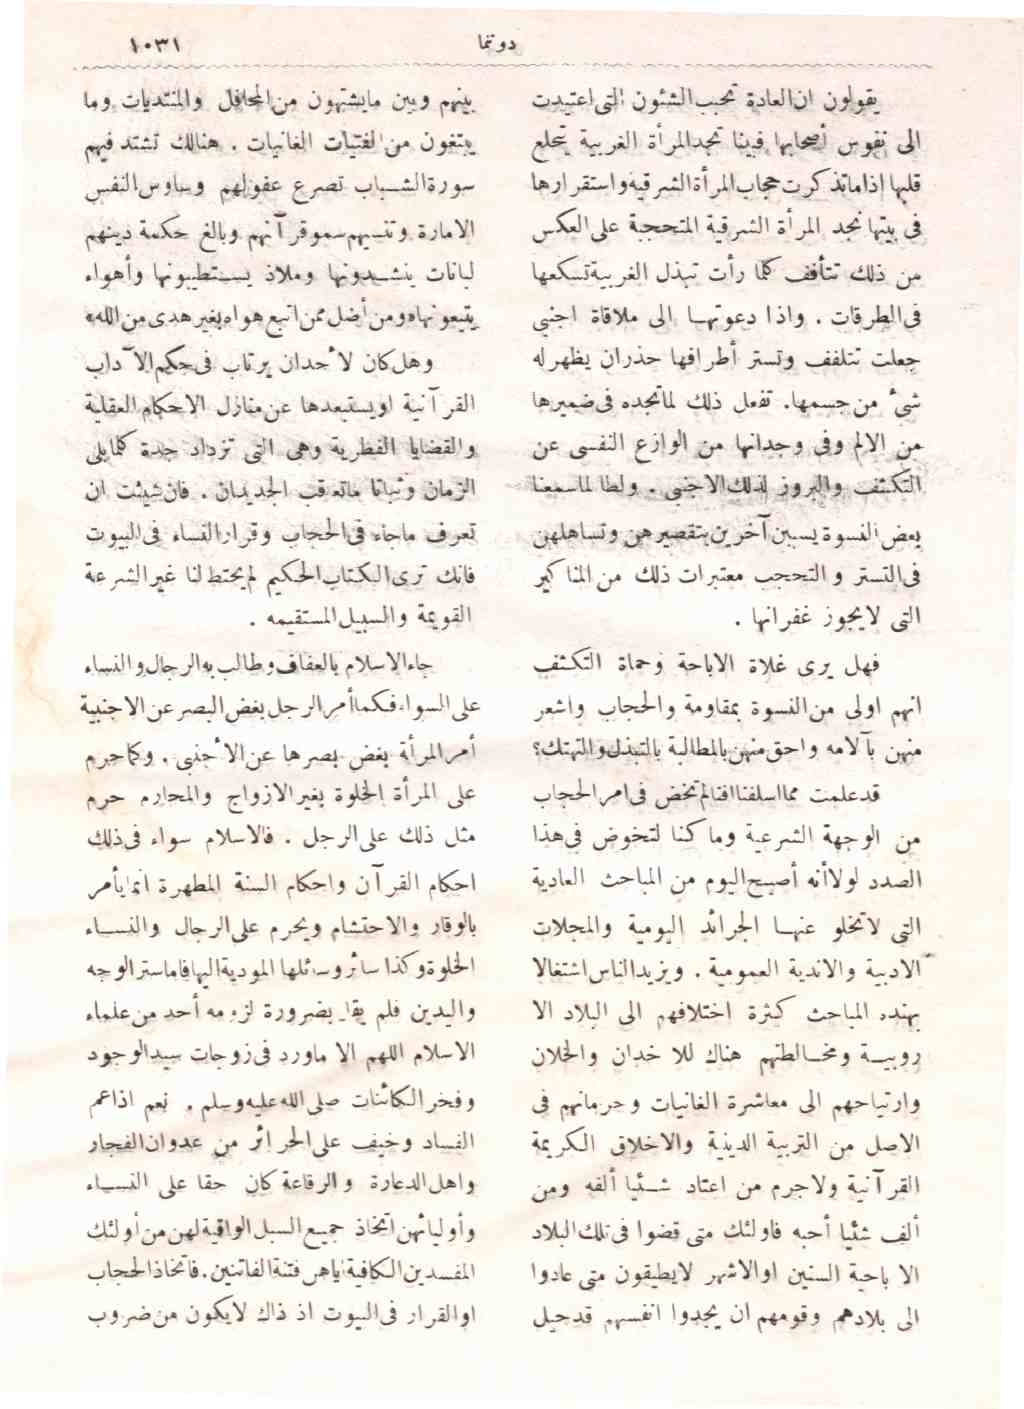 دوتما
١٠٣١
يقولون ان العادة تحبب الشئون التى اعتيدت
الى نفوس أصحابها فبينا تجد المرأة الغربية يتخلع
قلبها إذا ماتذكرت حجاب المرأة الشرقية واستقرارها
فى بيتها نجد المرأة الشرقية المتحجبة على العكس
من ذلك تتأفف كلما رأت تبذل الغربية تسكعها
فى الطرقات . واذا دعوتهـا الى ملاقاة اجنبى
جعلت تتلفف وتستر أطرافها حذران يظهر له
شىء من جسمها. تفعل ذلك لماتجده فى ضميرها
من الالم وفى وجدانها من الوازع النفسى عن
التكشف والبروز لذلك الاجنبى . ولطالما سمعنا
بعض النسوة يسببن آخرين بتقصيرهن وتساهلهن
فى التستر و التحجب معتبرات ذلك من المناكير
التى لايجوز غفرانها .
فهل يرى غلاة الاباحة وحماة التكشف
انهم اولى من النسوة بمقاومة والحجاب واشعر
منهن بآلامه واحق منهن بالمطالبة بالتبذل والتهتك؟
قدعلمت مما اسلفنا اننالم نخض فى امر الحجاب
من الوجهة الشرعية وما كنا لنخوض فى هذا
الصدد لولا أنه أصبح اليوم من المباحث العادية
التى لاتخلو عنهـا الجرائد اليومية والمجلات
الادبية والاندية العمومية . ويزيد الناس اشتغالا
بهذه المباحث كثرة اختلافهم الى البلاد الا
روبيـة ومخـالطتهم هناك للا خدان والخلان
وارتياحهم الى معاشرة الغانيات وحرمانهم فى
الاصل من التربية الدينية والاخلاق الكريمة
القرآنية ولاجرم من اعتاد شـئيا ألفه ومن
ألف شئيا أحبه فاولئك متى قضوا فى تلك البلاد
الا باحية السنين اوالاشهر لايطيقون متى عادوا
الى بلادهم وقومهم ان يجدوا انفسهم قدحيل
بينهم وبين مايشتهون من المحافل والمنتديات وما
يبتغون من الفتيات الغانيات . هنالك تشتد فيهم
سورة الشـباب تصرع عقولهم وسـاوس النفس
الامارة وتنسيهم سموقرآنهم وبالغ حكمة دينهم
لبانات ينشـدونها وملاذ يسـتطيبونها وأهواء
يتبعونها «ومن أضل ممن اتبع هواه بغير هدى من الله»
وهل كان لأحدان يرتاب فى حكم الآداب
القرآنية اويستبعدها عن منازل الاحكام العقلية
والقضايا الفطرية وهى التى تزداد جدة كلما بلى
الزمان وثباتا ماتعاقب الجديدان . فان شيئت ان
تعرف ماجاء فى الحجاب وقرار النساء فى البيوت
فانك ترى الكتاب الحكيم لم يختط لنا غير الشرعة
القويمة والسبيل المستقيمه .
جاء الاسلام بالعفاف وطالب به الرجال والنساء
على السواء فكما أمر الرجل بغض البصر عن الاجنبية
أمر المرأة بغض بصرها عن الأجنبى . وكما حرم
على المرأة الخلوة بغير الازواج والمحارم حرم
مثل ذلك على الرجل . فالاسلام سواء فى ذلك
احكام القرآن واحكام السنة المطهرة انما يأمر
بالوقار والاحتشام ويحرم على الرجال والنسـاء
الخلوة وكذا سائر وسائلها المودية اليها فاما ستر الوجه
واليدين فلم يقل بضرورة لزومه أحد من علماء
الاسلام اللهم الا ماورد فى زوجات سيد الوجود
وفخر الكائنات صلى الله عليه وسلم . نعم اذاعم
الفساد وخيف على الحرائر من عدوان الفجار
واهل الدعارة والرقاعة كان حقا على النسـاء
وأوليائهن اتخاذ جميع السبل الواقية لهن من أولئك
المفسدين الكافية اياهن فتنة الفاتنين. فاتخاذ الحجاب
اوالقرار فى البيوت اذ ذاك لايكون من ضروب